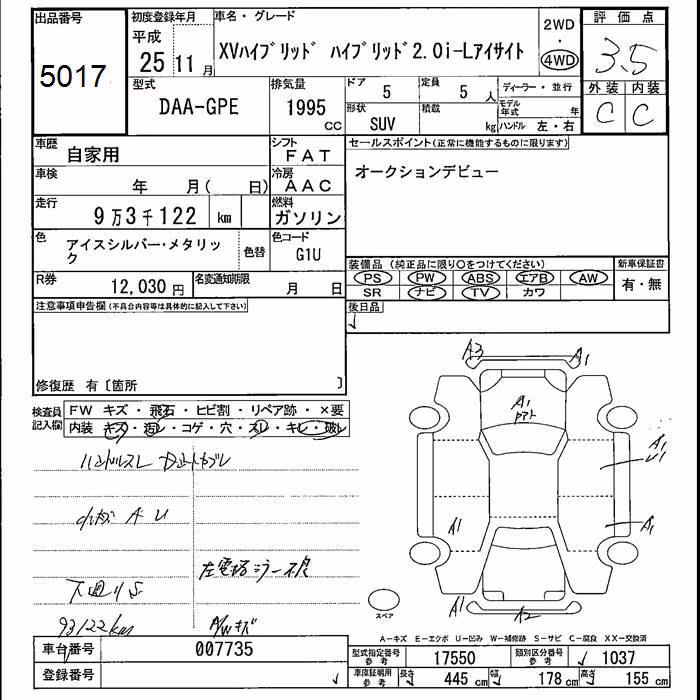 出品番号
5017
初度登録年月
平成
25 11 月
車名・グレード
XVハイブリッド ハイブリッド2.0i-Lアイサイト
2WD
・
4WD
評価点
3.5
外装 内装
C C
型式
DAA-GPE
排気量
1995
cc
ドア
5
定員
5 人
形状
SUV
積載
kg
ディーラー・並行
モデル年式 年
ハンドル 左・右
車歴
自家用
シフト
FAT
車検
年 月( 日)
冷房
AAC
走行
9万3千122 km
燃料
ガソリン
色
アイスシルバー・メタリック
色替
色コード
G1U
R券
12,030 円
名変通知期限
月 日
セールスポイント(正常に機能するものに限ります)
オークションデビュー
装備品 (純正品に限り〇をつけてください)
PS PW ABS エアB AW
SR ナビ TV カワ
新車保証書
有・無
後日品
注意事項申告欄(不具合内容等は具体的に記入して下さい)
修復歴 有〔箇所 〕
検査員記入欄
FW キズ・飛石・ヒビ割・リペア跡・×要
内装 キズ・汚レ・コゲ・穴・スレ・キレ・破レ
ハンドルスレ
小キズ A U
左電格ミラー不良
下廻りS
93122km
A/Wキズ
A3
A1
A1
A1
U1
A1
A1
A1
A2
スペア
A-キズ E-エクボ U-凹み W-補修跡 S-サビ C-腐食 XX-交換済
車台番号
007735
登録番号
型式指定番号
参考
17550
類別区分番号
参考
1037
車庫証明用
参考
長さ
445 cm
幅
178 cm
高さ
155 cm